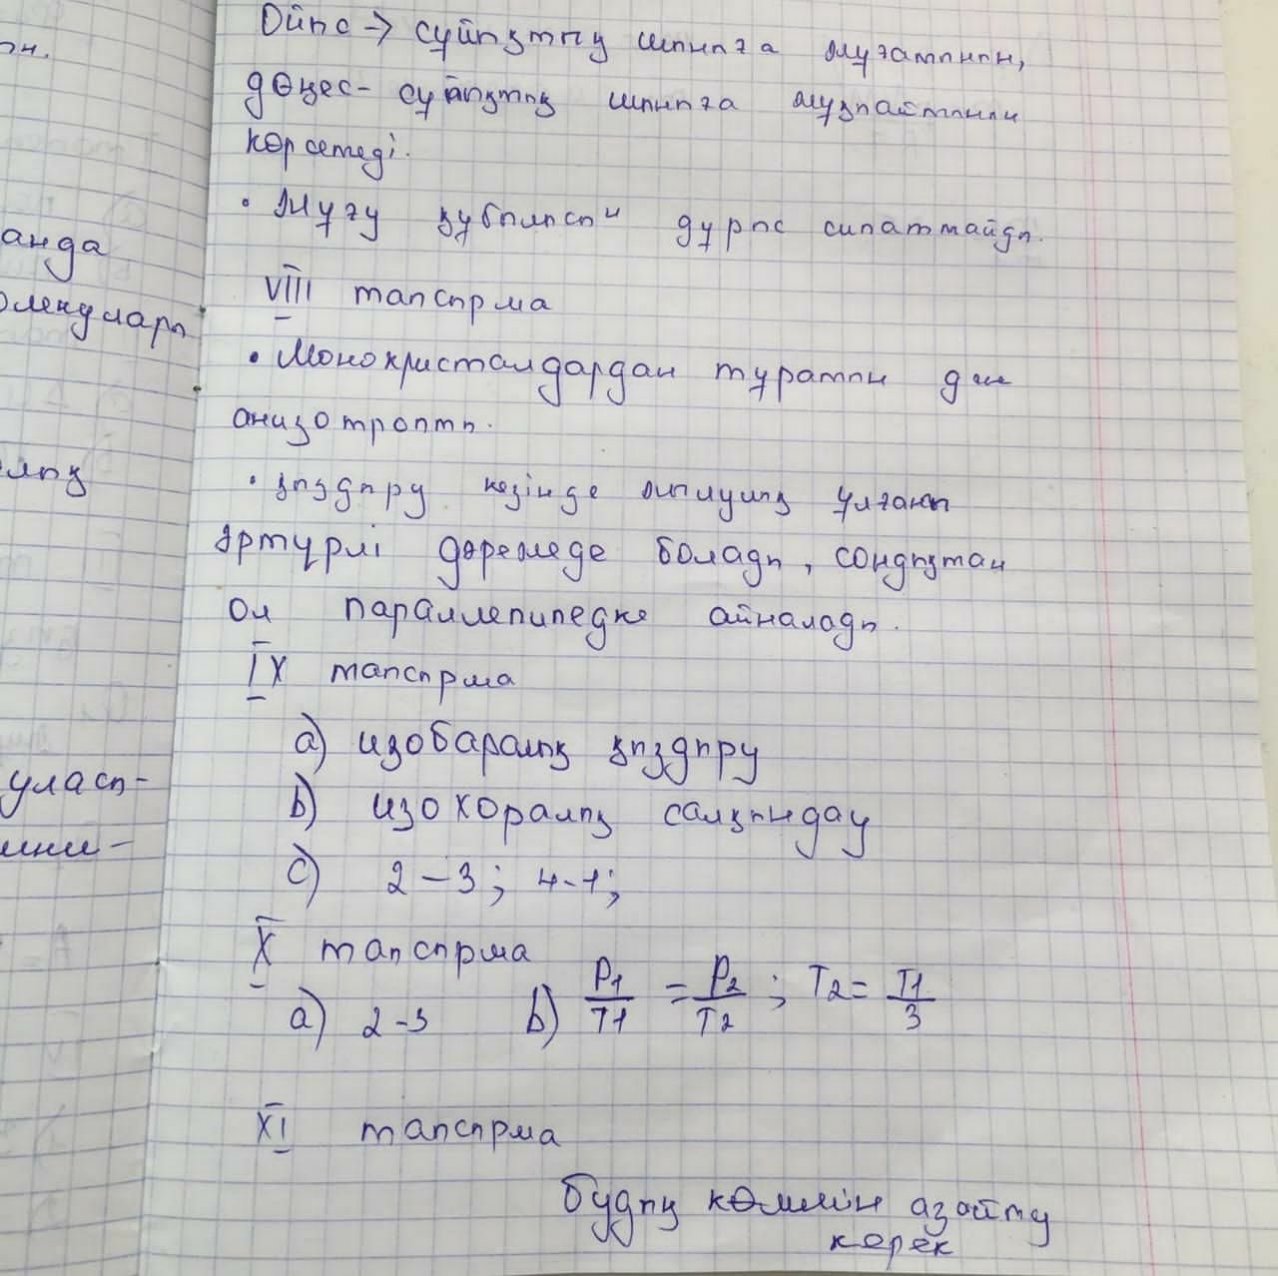 он.
анда
олекулары
лық
уласы-
Ойыс → сұйықтың шыныға жұғатынын,
дөңес- сұйықтың шыныға жұқпайтынын
көрсетеді.
• Жұғу құбылысын дұрыс сипаттайды.
VIII тапсырма
• Монокристалдардан тұратын дене
анизотропты.
• қыздыру кезінде жылулық ұлғаюы
әртүрлі дәрежеде болады, сондықтан
ол параллепипедке айналады.
IX тапсырма
a) изобаралық қыздыру
b) изохоралық салқындау
c) 2-3; 4-1;
X тапсырма
a) 2-3 b) P1/T1 = P2/T2; T2= T1/3
XI тапсырма
будың көлемін азайту
керек